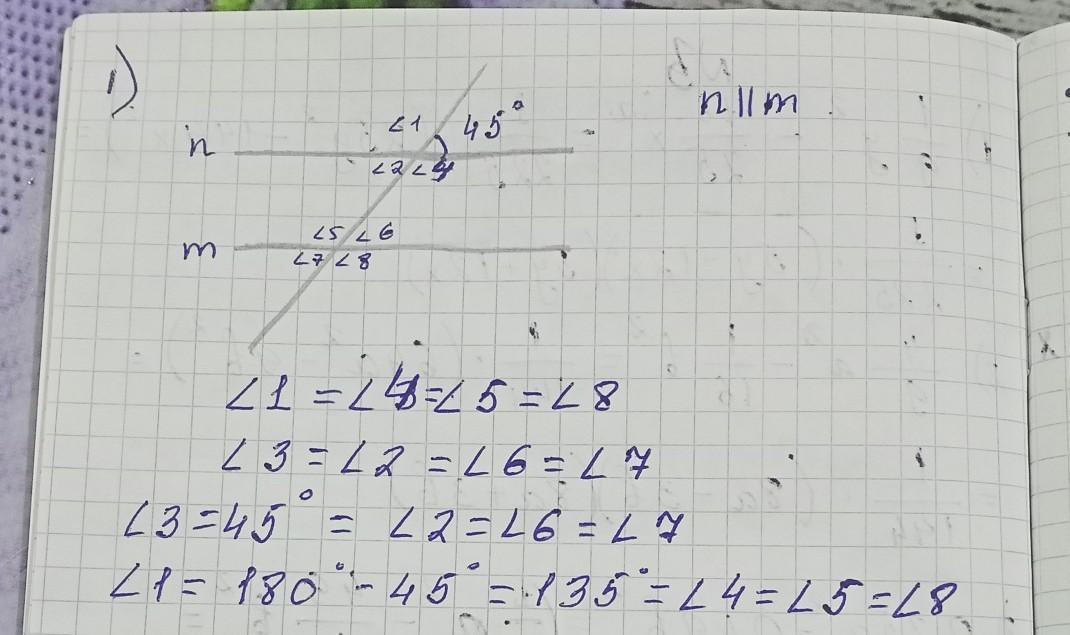 1)
n || m
∠1 45°
n
∠2 ∠4
∠5 ∠6
m
∠7 ∠8
∠1 = ∠4 = ∠5 = ∠8
∠3 = ∠2 = ∠6 = ∠7
∠3 = 45° = ∠2 = ∠6 = ∠7
∠1 = 180° - 45° = 135° = ∠4 = ∠5 = ∠8